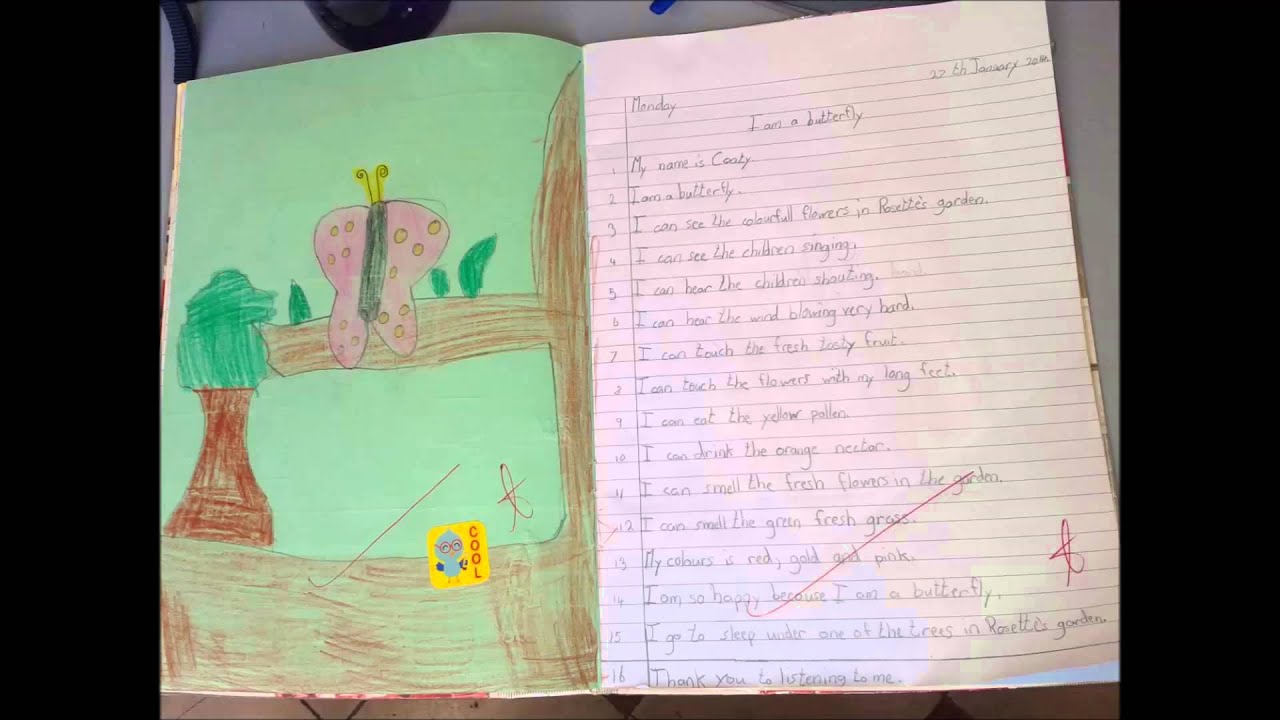 COOL
27th January 20
Monday
I am a butterfly
1 My name is Coaty
2 I am a butterfly.
3 I can see the colourfull flowers in Rosette's garden.
4 I can see the children singing.
5 I can hear the children shouting.
6 I can hear the wind blowing very hard.
7 I can touch the fresh tasty fruit.
8 I can touch the flowers with my long feet.
9 I can eat the yellow pollen.
10 I can drink the orange nectar.
11 I can smell the fresh flowers in the garden.
12 I can smell the green fresh grass.
13 My colours is red, gold and pink.
14 I am so happy because I am a butterfly.
15 I go to sleep under one of the trees in Rosette's garden.
16 Thank you to listening to me.